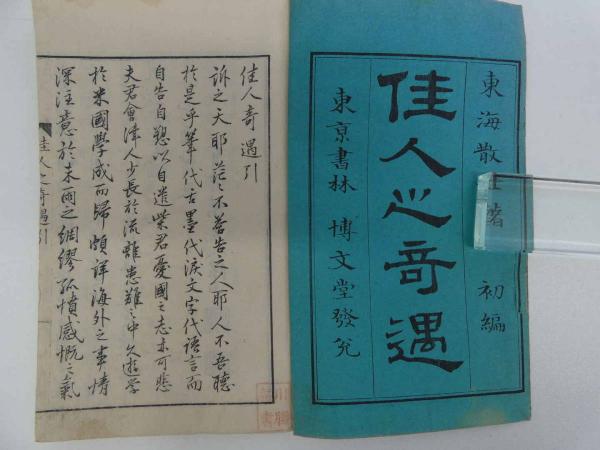 東海散士著 初編
佳人之奇遇
東京書林 博文堂發兌
佳人奇遇引
訴之天耶茫々不荅告之人耶人不吾聽
於是乎筆代舌墨代淚文字代語言而
自告自愬以自遣柴君憂國之志亦可悲
夫君會津人少長於流離患難之中久遊學
於米國學成而歸頗詳海外之事情
深注意於未雨之綢繆孤憤感慨之氣
佳人之奇遇引